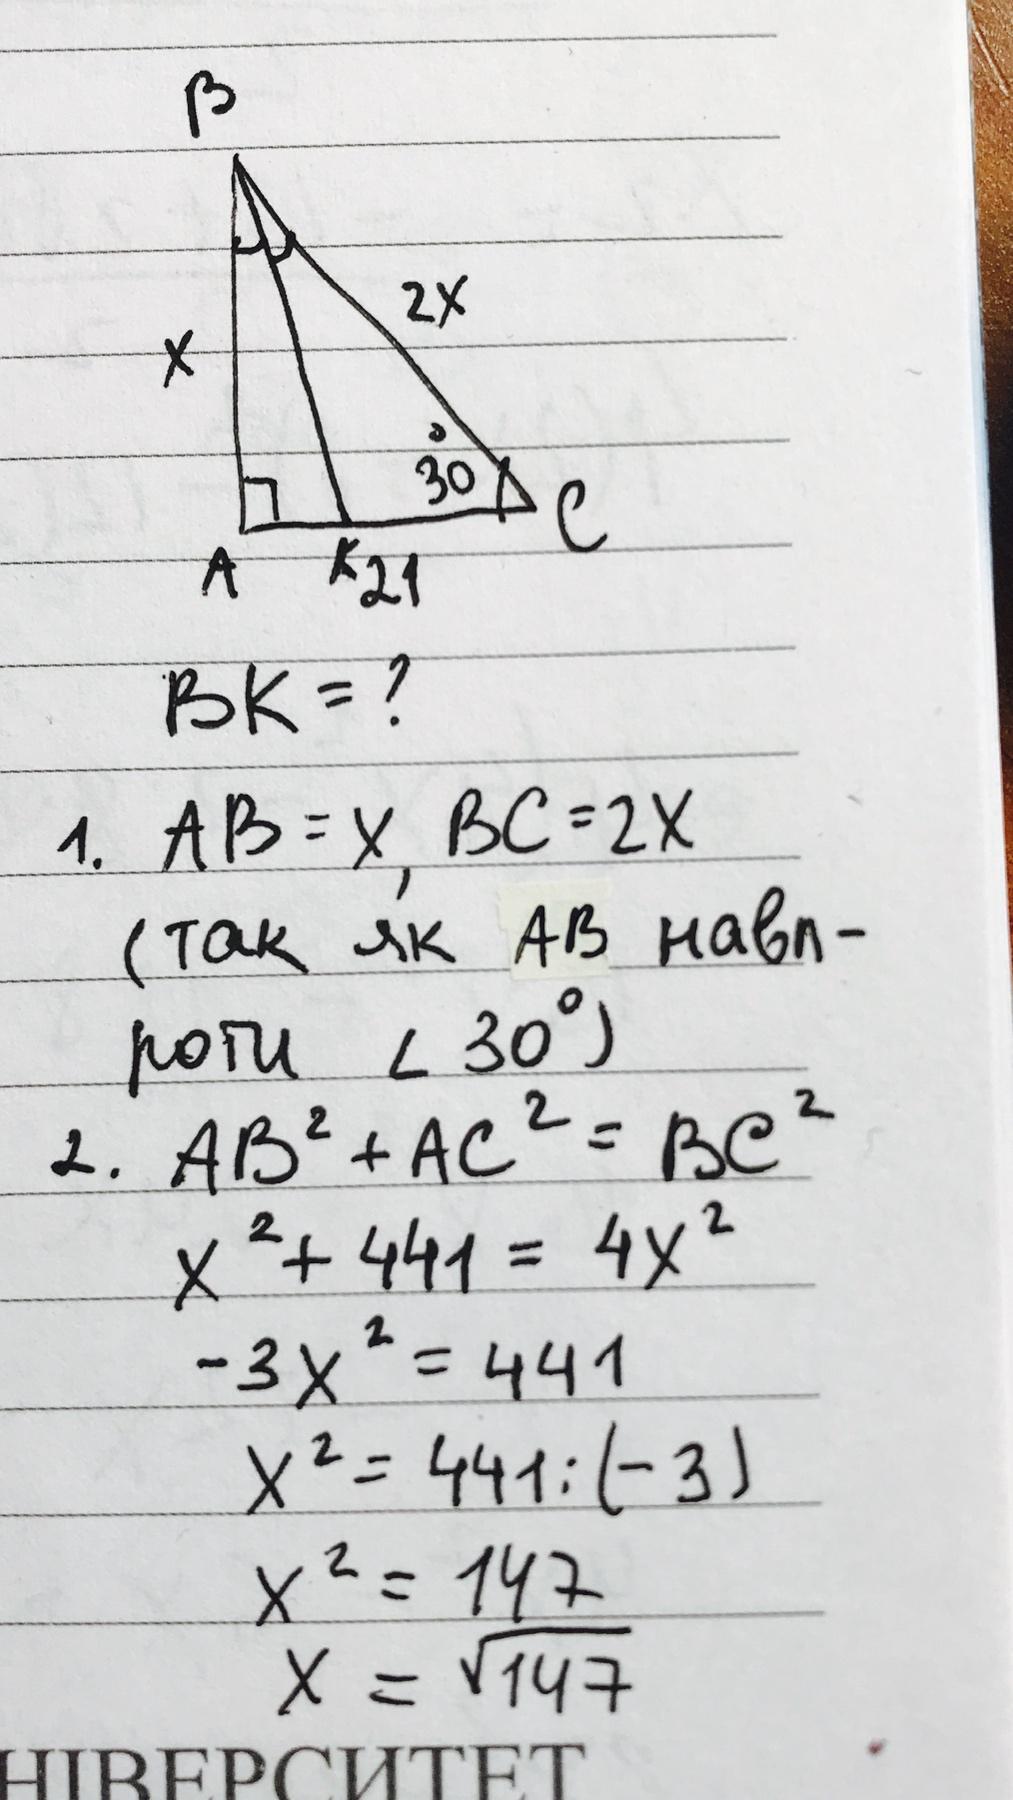 B
2x
x
30°
C
A
K
21
BK = ?
1. AB = x, BC = 2x
(так як AB навп-
роти ∠ 30°)
2. AB² + AC² = BC²
x² + 441 = 4x²
-3x² = 441
x² = 441 : (-3)
x² = 147
x = √147
НІВЕРСИТЕТ